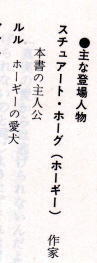 ●主な登場人物
スチュアート・ホーグ(ホーギー) 作家
本書の主人公
ルル ホーギーの愛犬